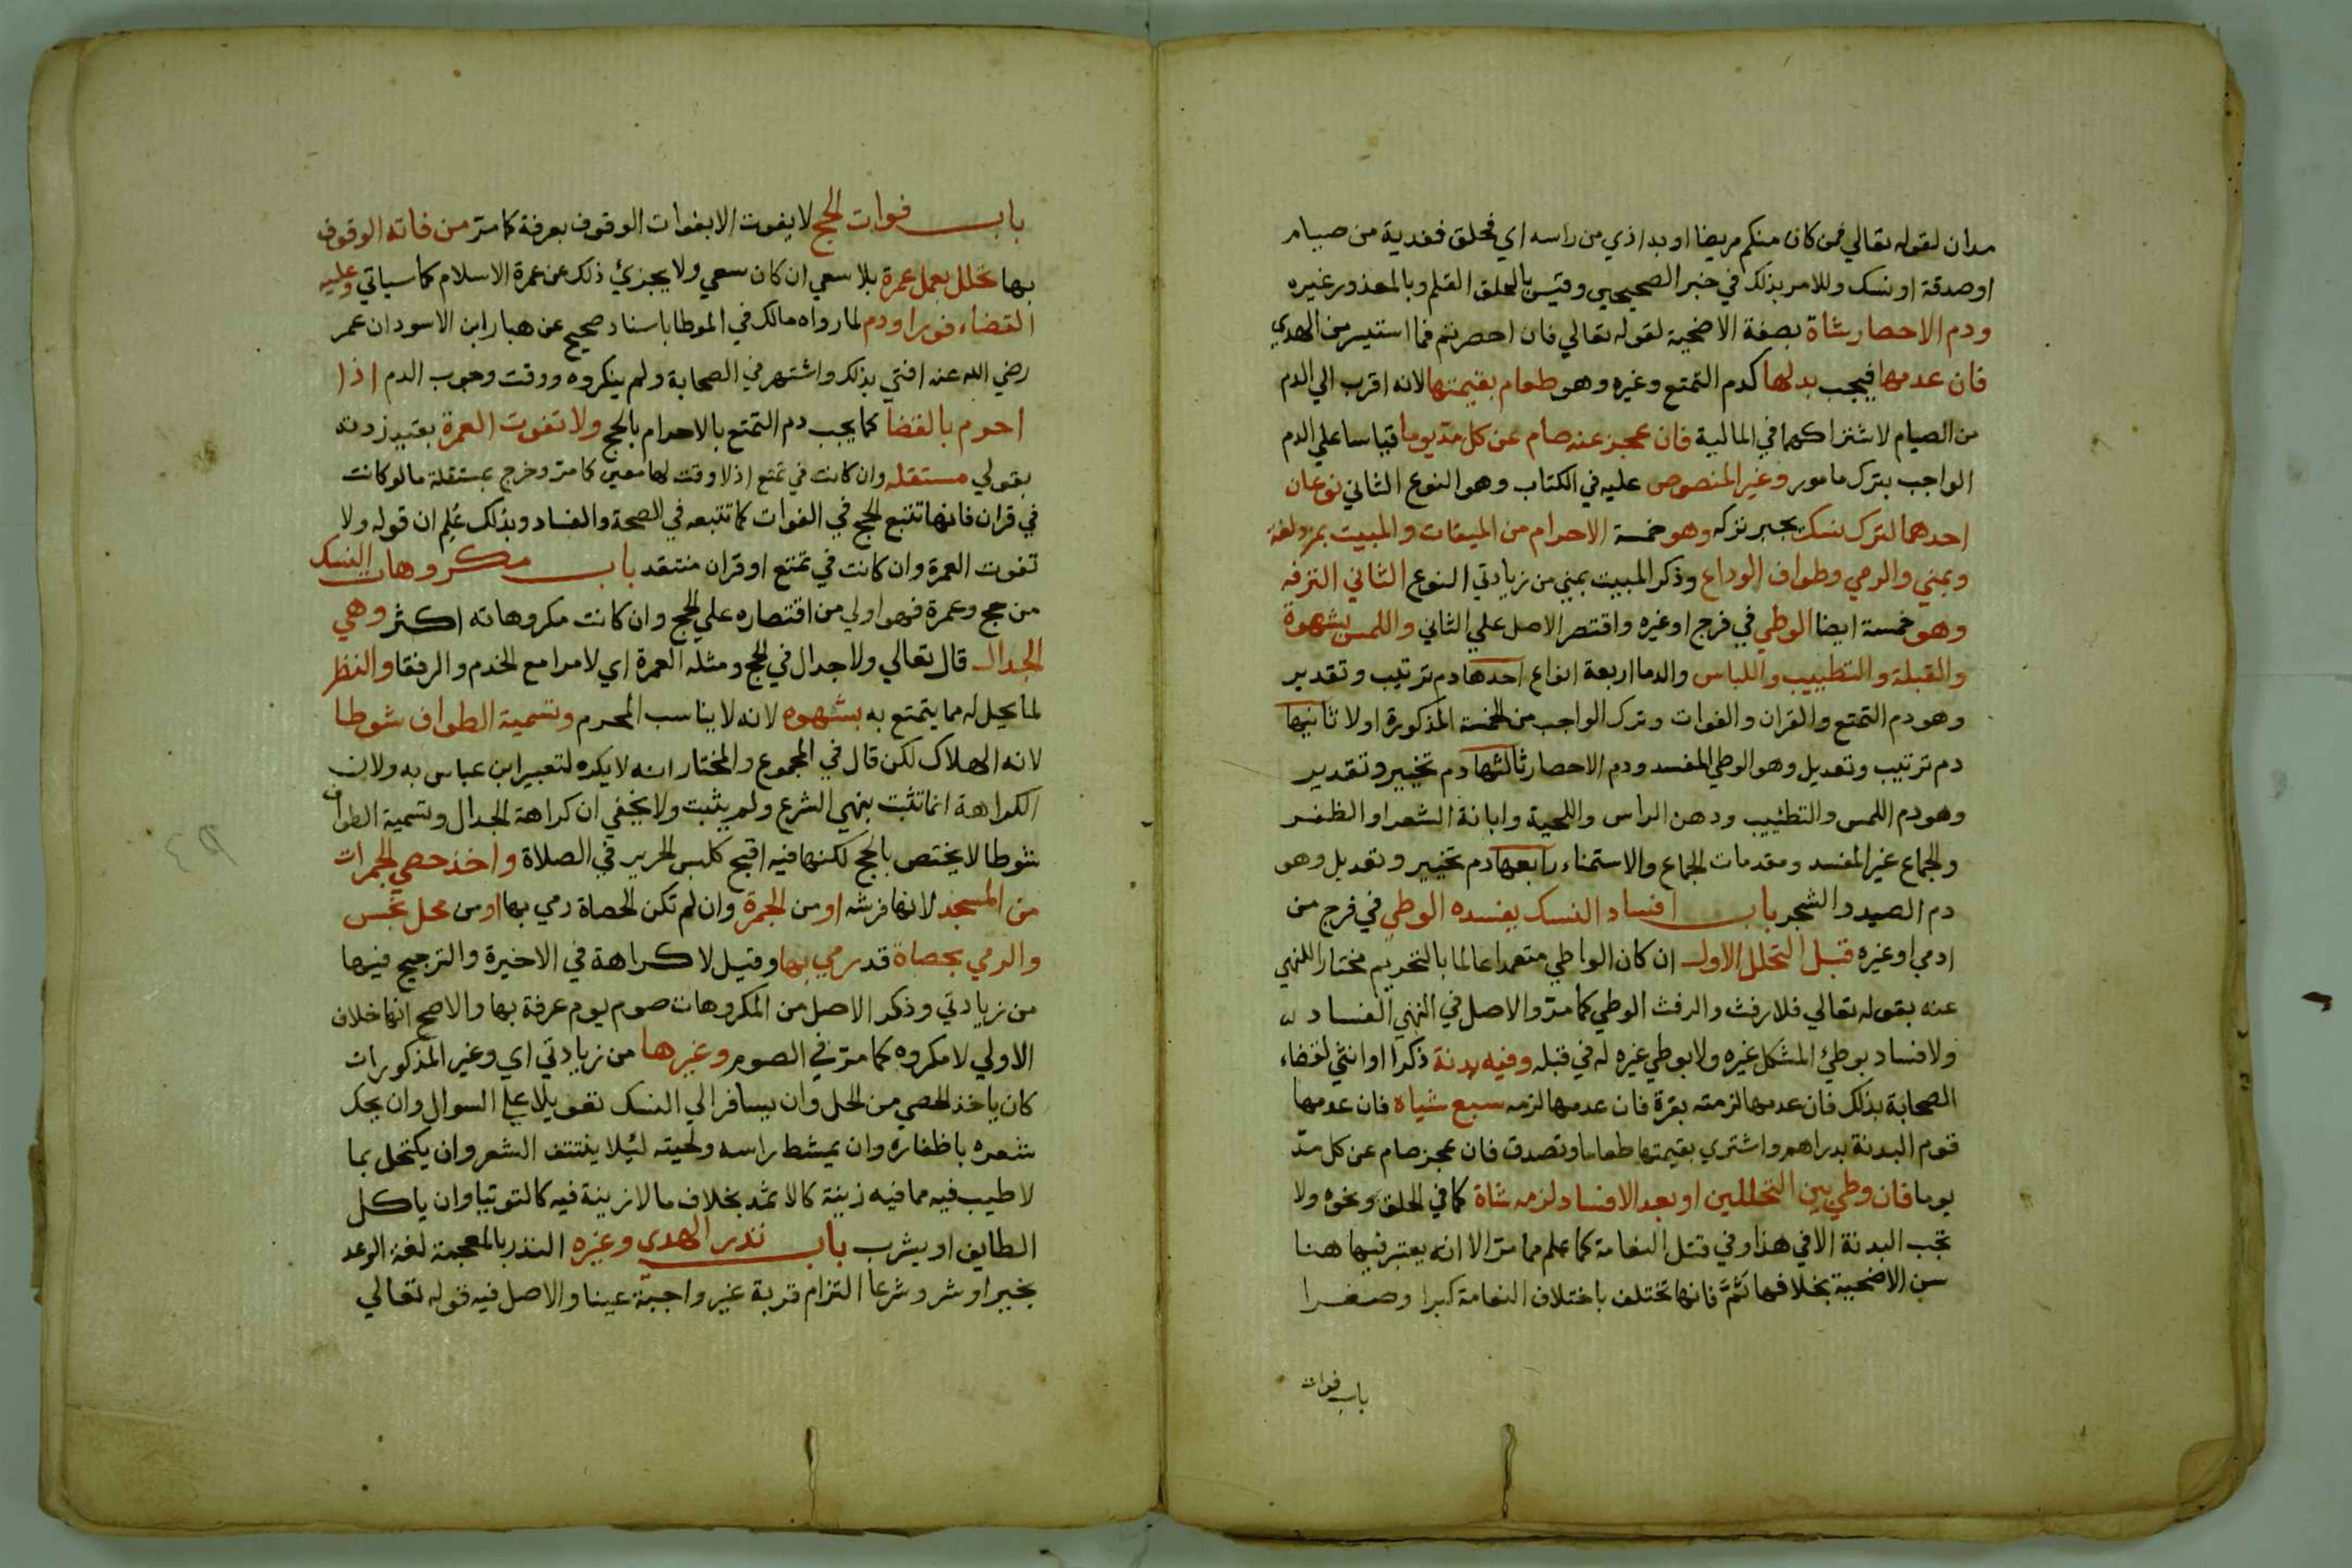 مدان لقوله تعالي فمن كان منكم مريضا او به اذي من راسه اي فحلق ففدية من صيام
او صدقة او نسك وللامر بذلك في خبر الصحيحين وقيس بالحلق القلم وبالمعذور غيره
ودم الاحصار شاة بصفة الاضحية لقوله تعالي فان احصرتم فما استيسر من الهدي
فان عدمها فيجب بدلها كدم التمتع وغيره وهو طعام بقيمتها لانه اقرب الي الدم
من الصيام لاشتراكهما في المالية فان عجز عنه صام عن كل مد يوما قياسا علي الدم
الواجب بترك مامور وغير المنصوص عليه في الكتاب وهو النوع الثاني نوعان
احدهما لترك نسك يجبر تركه وهو خمسة الاحرام من الميقات والمبيت بمزدلفة
وبمني والرمي وطواف الوداع وذكر المبيت بمني من زيادتي النوع الثاني الترفه
وهو خمسة ايضا الوطي في فرج او غيره واقتصر الاصل علي الثاني واللمس بشهوة
والقبلة والتطييب واللباس والدما اربعة انواع احدها دم ترتيب وتقدير
وهو دم التمتع والقران والفوات وترك الواجب من الخمسة المذكورة اولا ثانيها
دم ترتيب وتعديل وهو الوطي المفسد ودم الاحصار ثالثها دم تخيير وتقدير
وهو دم اللمس والتطييب ودهن الراس واللحية وابانة الشعر او الظفر
والجماع غير المفسد ومقدمات الجماع والاستمناء رابعها دم تخيير وتعديل وهو
دم الصيد والشجر باب افساد النسك يفسده الوطي في فرج من
ادمي او غيره قبل التحلل الاول ان كان الواطي متعمدا عالما بالتحريم مختارا للنهي
عنه بقوله تعالي فلا رفث والرفث الوطي كما مر والاصل في النهي الفساد
ولا فساد بوطئ المشكل غيره ولا بوطي غيره له في قبله وفيه بدنة ذكرا او انثي لقضاء
الصحابة بذلك فان عدمها لزمته بقرة فان عدمها لزمه سبع شياه فان عدمها
قوم البدنة بدراهم واشتري بقيمتها طعاما وتصدق فان عجز صام عن كل مد
يوما فان وطي بين التحللين او بعد الافساد لزمه شاة كما في الحلق ونحوه ولا
تجب البدنة الا في هذا وفي قتل النعامة كما علم مما مر الا انه يعتبر فيها هنا
سن الاضحية بخلافها ثم فانها تختلف باختلاف النعامة كبرا وصغرا
باب فوات
باب فوات الحج لا يفوت الا بفوات الوقوف بعرفة كما مر من فاته الوقوف
بها تحلل بعمل عمرة بلا سعي ان كان سعي ولا يجزئ ذلك عن عمرة الاسلام كما سياتي وعليه
القضاء فورا ودم لما رواه مالك في الموطا باسناد صحيح عن هبار ابن الاسود ان عمر
رضي الله عنه افتي بذلك واشتهر في الصحابة ولم ينكروه ووقت وجوب الدم اذا
احرم بالقضا كما يجب دم التمتع بالاحرام بالحج ولا تفوت العمرة بقيد زدته
بقولي مستقله وان كانت في تمتع اذ لا وقت لها معين كما مر وخرج بمستقلة ما لو كانت
في قران فانها تتبع الحج في الفوات كما تتبعه في الصحة والفساد وبذلك عُلِم ان قوله ولا
تفوت العمرة وان كانت في تمتع او قران منتقد باب مكروهات النسك
من حج وعمرة فهو اولي من اقتصاره علي الحج وان كانت مكروهاته اكثر وهي
الجدال قال تعالي ولا جدال في الحج ومثله العمرة اي لا مرا مع الخدم والرفقا والنظر
لما يحل له مما يتمتع به بشهوه لانه لا يناسب المحرم وتسمية الطواف شوطا
لانه الهلاك لكن قال في المجموع والمختار انه لا يكره لتعبير ابن عباس به ولان
الكراهة انما تثبت بنهي الشرع ولم يثبت ولا يخفي ان كراهة الجدال وتسمية الطواف
شوطا لا يختص بالحج لكنها فيه اقبح كلبس الحرير في الصلاة واخذ حصي الجمرات
من المسجد لانها فرشه او من الجمرة وان لم تكن الحصاة رمي بها او من محل نجس
والرمي بحصاة قد رمي بها وقيل لا كراهة في الاخيرة والترجيح فيها
من زيادتي وذكر الاصل من المكروهات صوم يوم عرفة بها والاصح انها خلاف
الاولي لا مكروه كما مر في الصوم وغيرها من زيادتي اي وغير المذكورات
كان ياخذ الحصي من الحل وان يسافر الي النسك تعويلا علي السوال وان يحك
شعره باظفاره وان يمشط راسه ولحيته ليلا ينتتف الشعر وان يكتحل بما
لا طيب فيه مما فيه زينة كالاثمد بخلاف ما لا زينة فيه كالتوتيا وان ياكل
الطايف او يشرب باب نذر الهدي وغيره النذر بالمعجمة لغة الوعد
بخير او شر وشرعا التزام قربة غير واجبة عينا والاصل فيه قوله تعالي